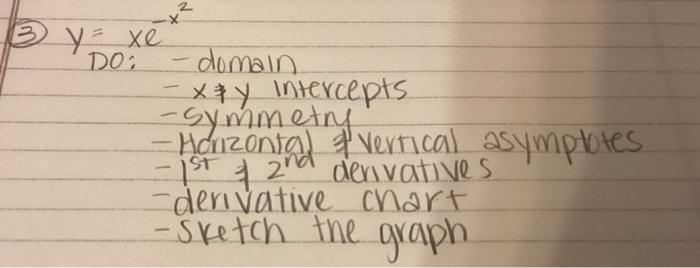 ③ y = xe^-x^2
DO: - domain
- x & y intercepts
- symmetry
- Horizontal & vertical asymptotes
- 1st & 2nd derivatives
- derivative chart
- sketch the graph